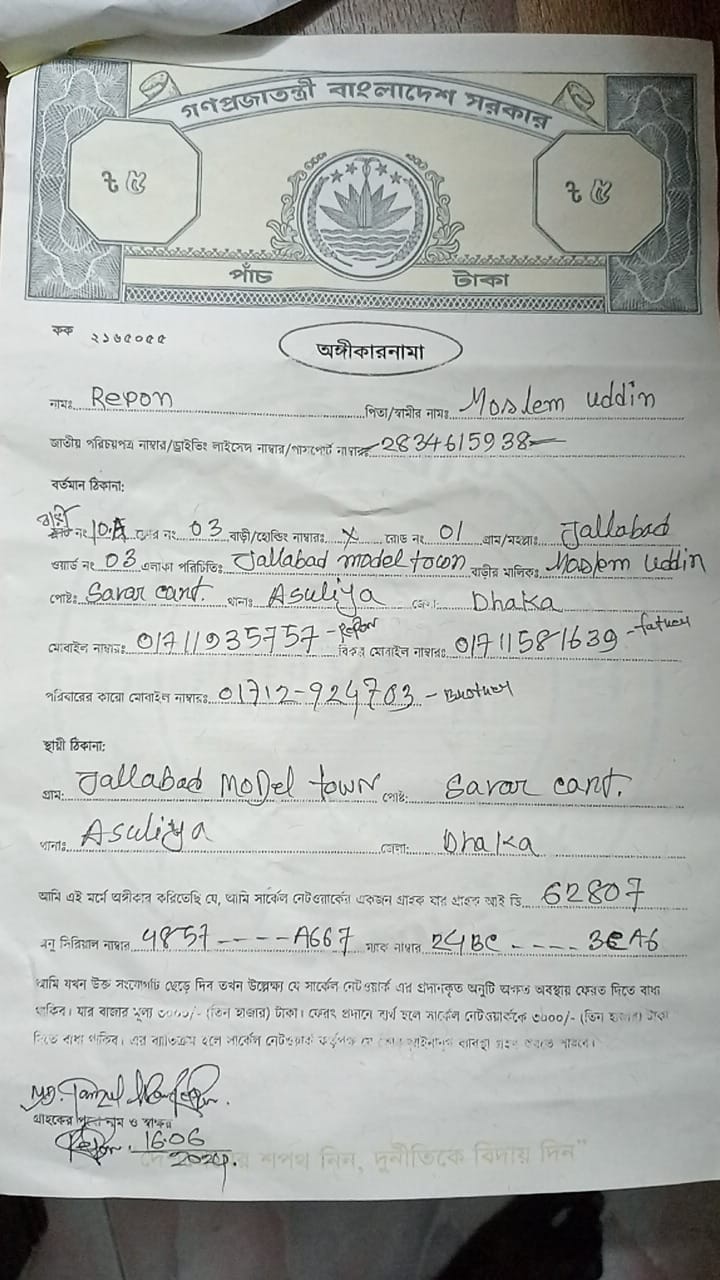 গণপ্রজাতন্ত্রী বাংলাদেশ সরকার
৳ ৫ ৳ ৫
পাঁচ টাকা
কক ২১৬৫০৫৫
অঙ্গীকারনামা
নামঃ Repon পিতা/স্বামীর নামঃ Moslem uddin
জাতীয় পরিচয়পত্র নাম্বার/ড্রাইভিং লাইসেন্স নাম্বার/পাসপোর্ট নাম্বারঃ 2834615938
বর্তমান ঠিকানা:
নং 10.A ফ্লোর নং 03 বাড়ী/হোল্ডিং নাম্বারঃ X রোড নং 01 গ্রাম/মহল্লাঃ Jallabad
ওয়ার্ড নং 03 এলাকা পরিচিতিঃ Jallabad model town বাড়ীর মালিকঃ Moslem Uddin
পোষ্টঃ Savar cant. থানাঃ Asuliya জেলা Dhaka
মোবাইল নাম্বারঃ 01711935757 - Repon বিকল্প মোবাইল নাম্বারঃ 01711581639 - father
পরিবারের কারো মোবাইল নাম্বারঃ 01712-924703 - Brother
স্থায়ী ঠিকানা:
গ্রাম: Jallabad Model town পোষ্ট: Savar cant.
থানাঃ Asuliya জেলা: Dhaka
আমি এই মর্মে অঙ্গীকার করিতেছি যে, আমি সার্কেল নেটওয়ার্কের একজন গ্রাহক যার গ্রাহক আই ডি 62807
অনু সিরিয়াল নাম্বার 4857----A667 ম্যাক নাম্বার 24BC----3CA6
আমি যখন উক্ত সংযোগটি ছেড়ে দিব তখন উল্লেক্ষ্য যে সার্কেল নেটওয়ার্ক এর প্রদানকৃত অনুটি অক্ষত অবস্থায় ফেরত দিতে বাধ্য
থাকিব। যার বাজার মূল্য ৩০০০/- (তিন হাজার) টাকা। ফেরৎ প্রদানে ব্যর্থ হলে সার্কেল নেটওয়ার্ককে ৩০০০/- (তিন হাজার) টাকা
দিতে বাধ্য থাকিব। এর ব্যতিক্রম হলে সার্কেল নেটওয়ার্ক কর্তৃপক্ষ যে কোন আইনানুগ ব্যবস্থা গ্রহন করতে পারবে।
গ্রাহকের পুরো নাম ও স্বাক্ষর
Repon. 16.06
2024.
শপথ নিন, দুর্নীতিকে বিদায় দিন"